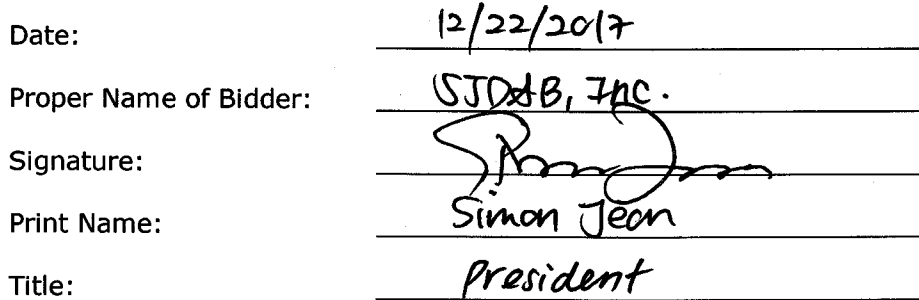 Date: 12/22/2017
Proper Name of Bidder: SJD&B, Inc.
Signature:
Print Name: Simon Jeon
Title: President